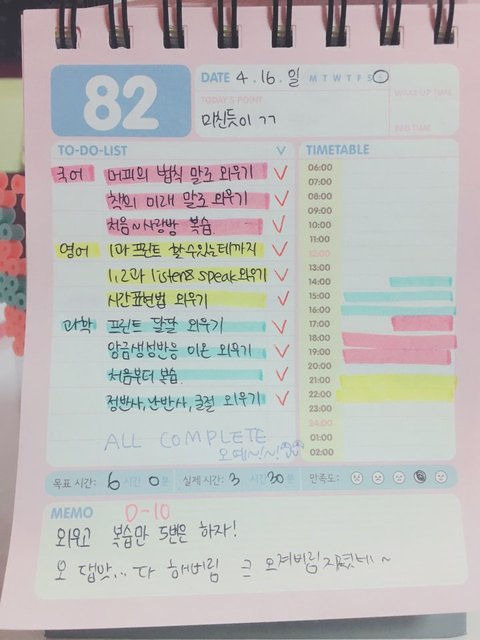 82
DATE 4. 16. 일 M T W T F S S
TODAY'S POINT
WAKE UP TIME
미친듯이 ㄱㄱ
BED TIME
TO-DO-LIST
국어 머피의 법칙 말로 외우기
책의 미래 말로 외우기
처음~사랑방 복습
영어 1과 프린트 할수있는데까지
1,2과 listen&speak 외우기
시간표현법 외우기
과학 프린트 달달 외우기
앙금생성반응 이온 외우기
처음부터 복습
정반사, 난반사, 굴절 외우기
ALL COMPLETE
오예~!~!
TIMETABLE
06:00
07:00
08:00
09:00
10:00
11:00
12:00
13:00
14:00
15:00
16:00
17:00
18:00
19:00
20:00
21:00
22:00
23:00
24:00
01:00
02:00
목표 시간: 6 시간 0 분 실제 시간: 3 시간 30 분 만족도:
MEMO D-10
외우고 복습만 5번은 하자!
오 댑앗... 다 해버림 크 오져버림 지렸네~